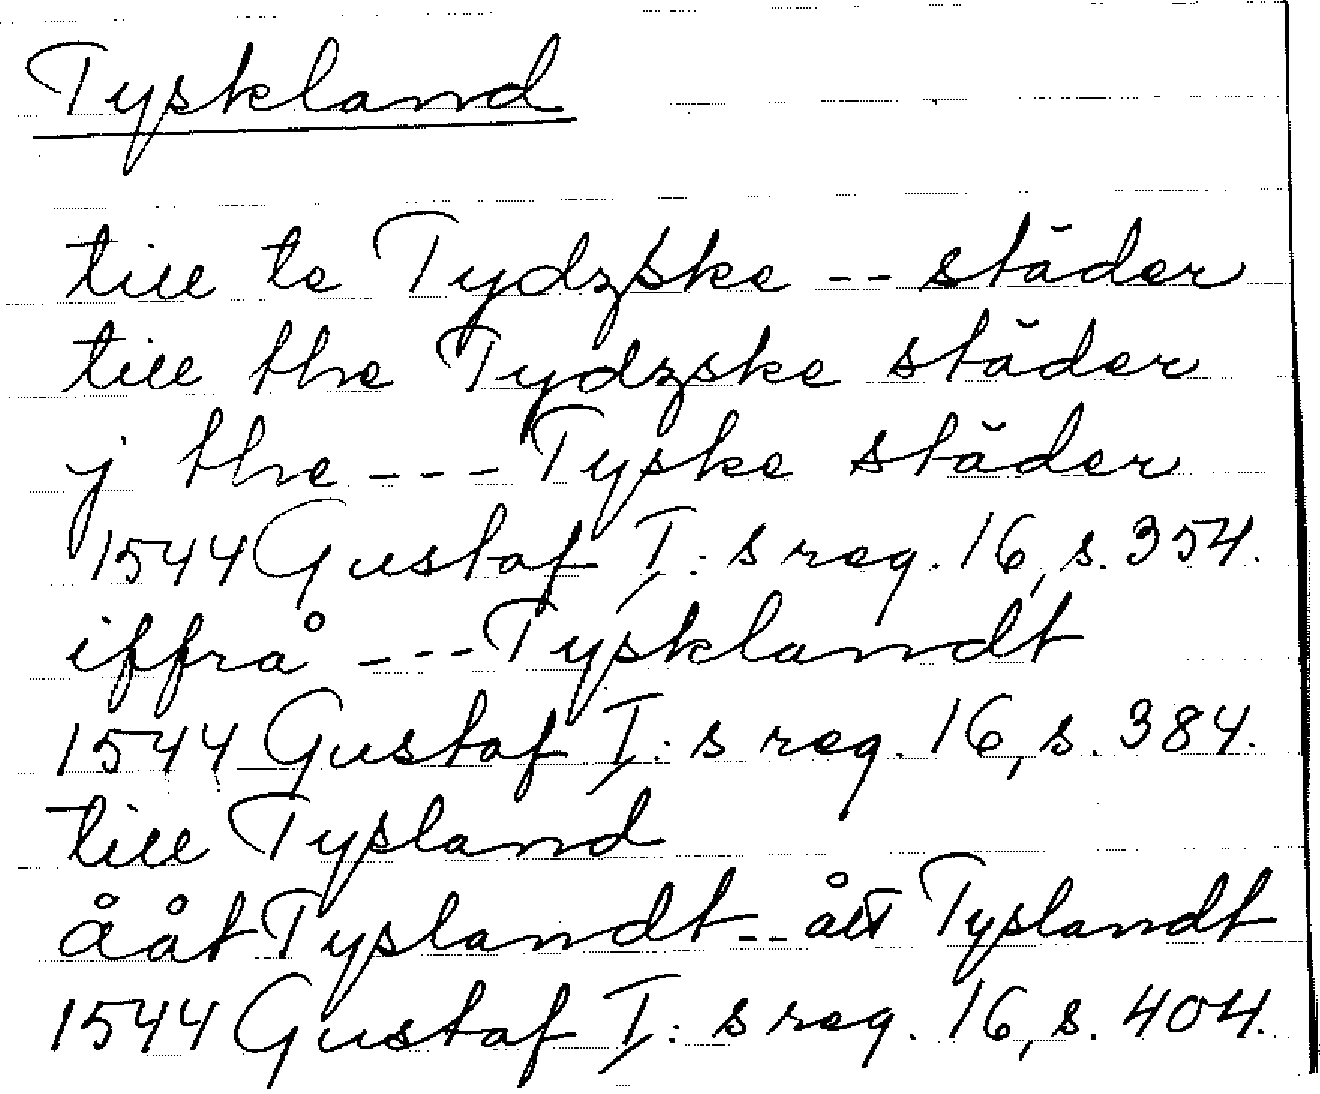 Tyskland
till te Tydzske -- städer
till the Tydzske städer
j the --- Tyske städer
1544 Gustaf I: s reg. 16, s. 354.
iffrå --- Tysklandt
1544 Gustaf I: s reg. 16, s. 384.
till Tysland
ååt Tyslandt -- ått Tyslandt
1544 Gustaf I: s reg. 16, s. 404.